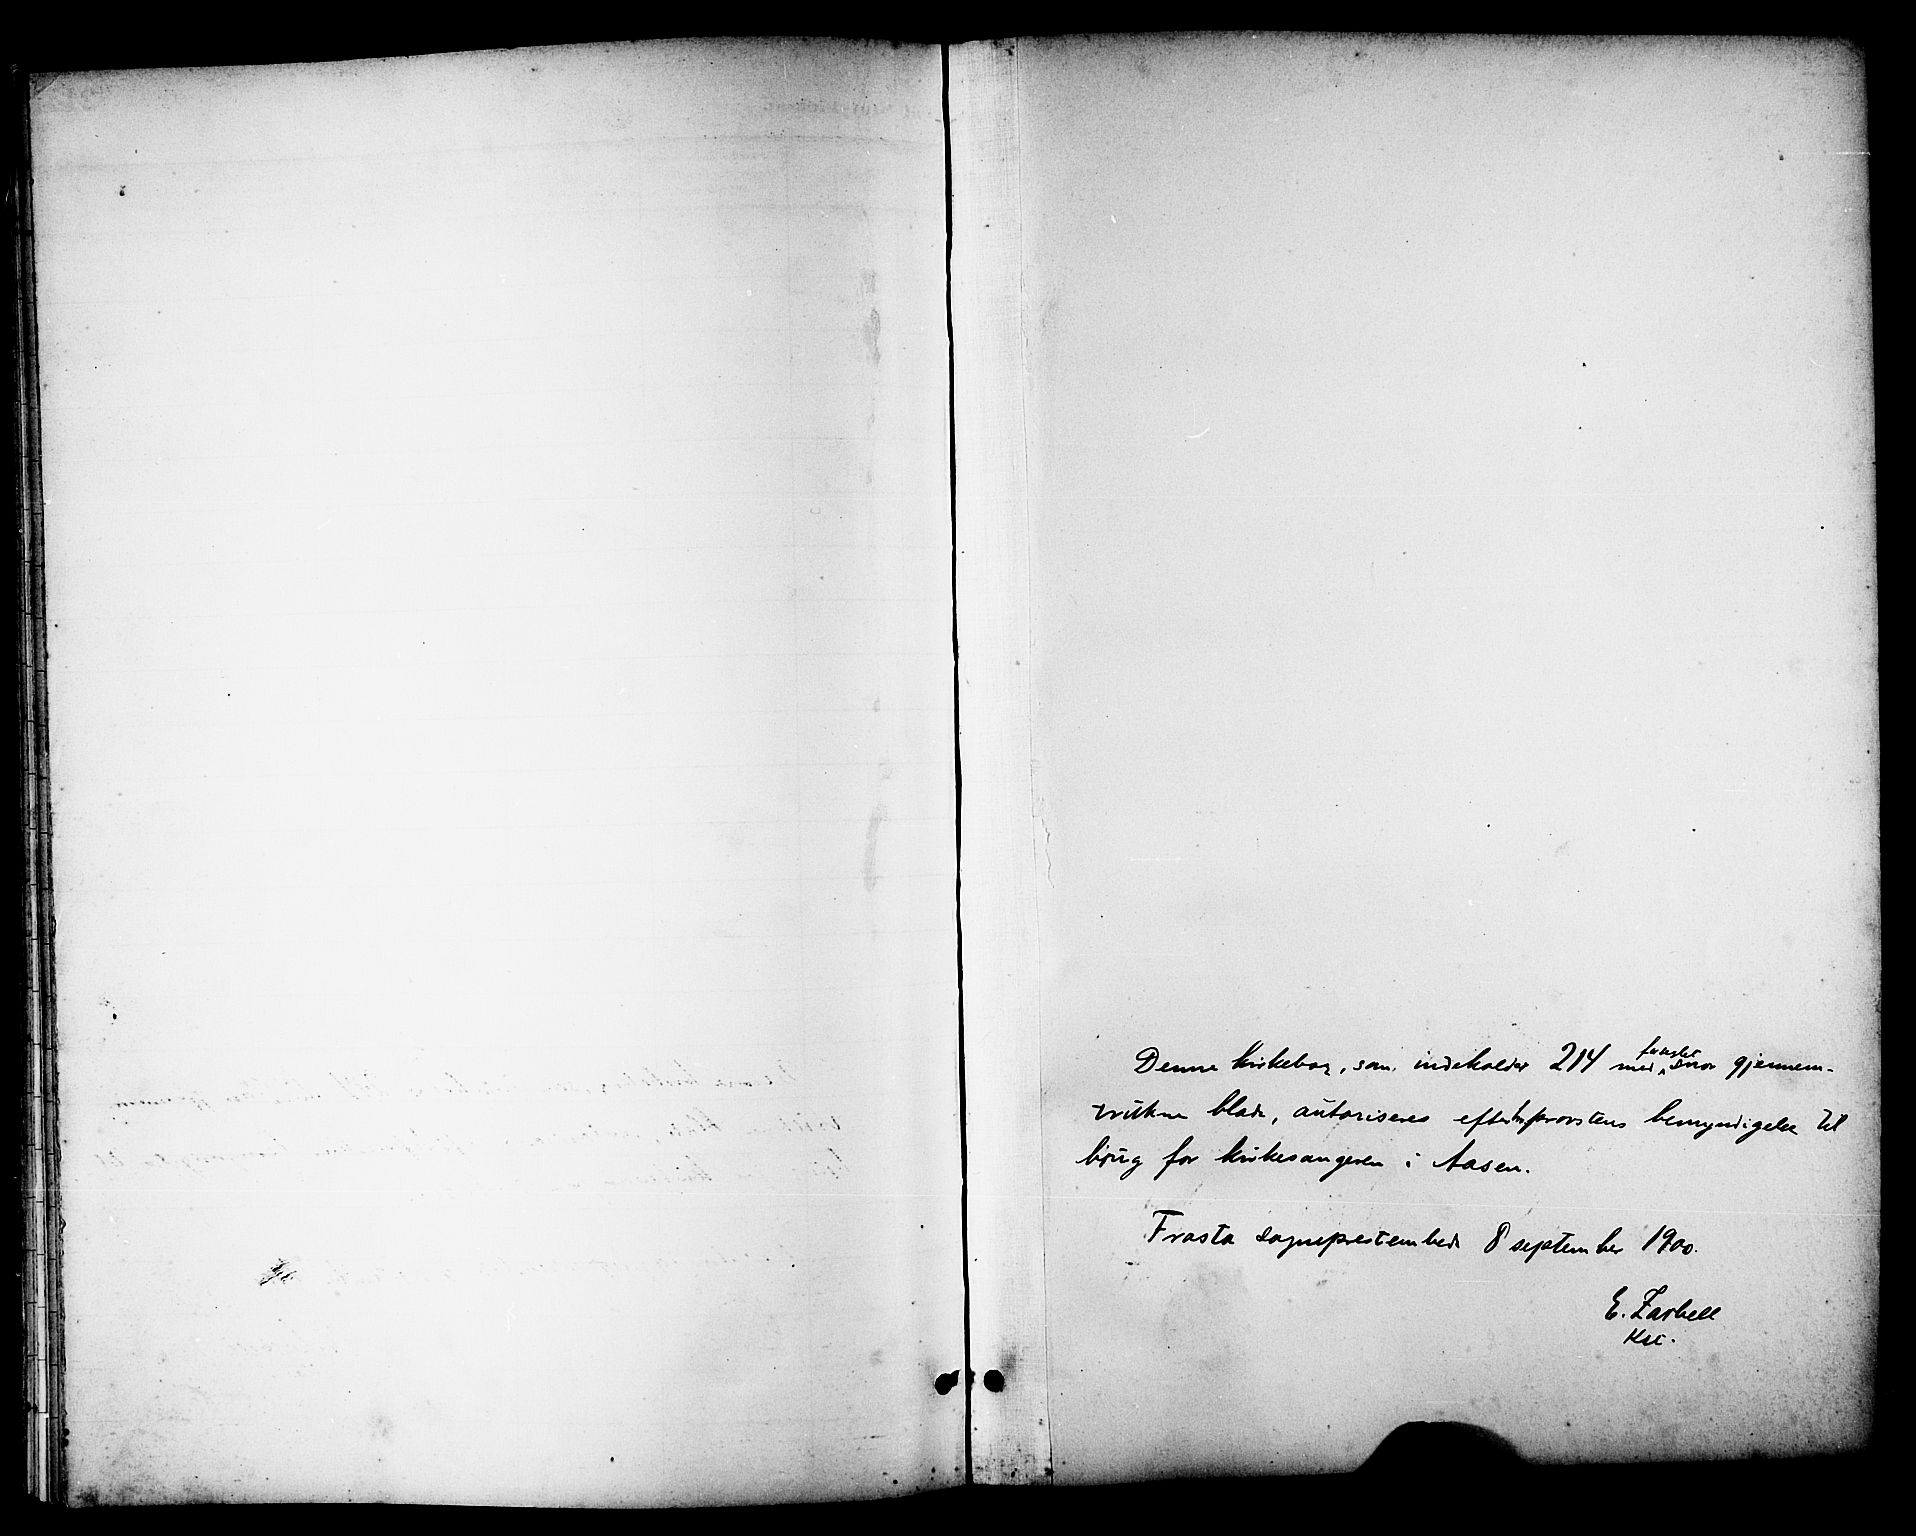 Denne kirkebog, som indeholder 214 med forseglet snor gjennem-
trukne blade, autoriseres efter hr provstens bemyndigelse til
brug for kirkesangeren i Aasen.
Frosta sogneprestembede 8 september 1900.
E. Zarbell